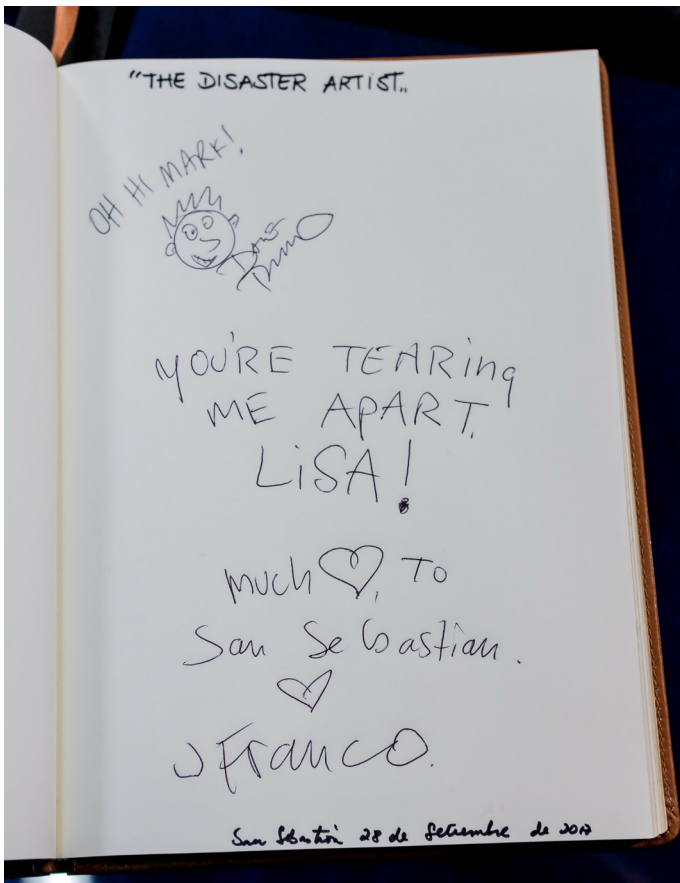 "THE DISASTER ARTIST"
OH HI MARK!
YOU'RE TEARING
ME APART,
LiSA!
much ♡, TO
San Sebastian.
♡
J Franco.
San Sebastián 28 de Setiembre de 2017